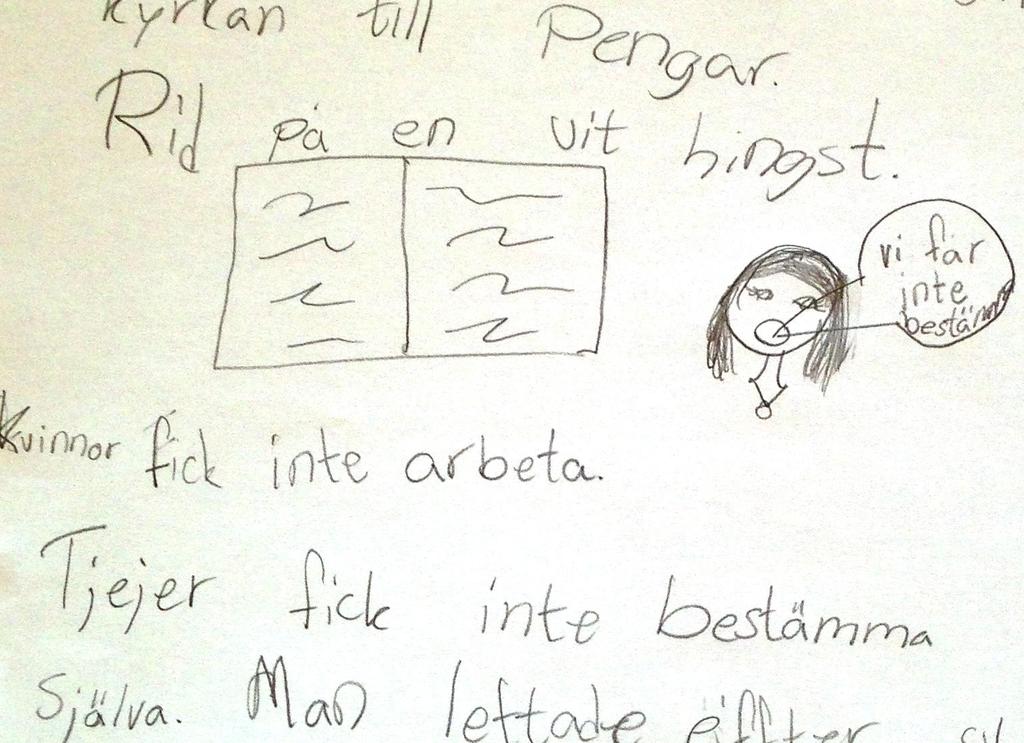 kyrkan till Pengar.
Rid på en vit hingst.
vi får
inte
bestämm
Kvinnor fick inte arbeta.
Tjejer fick inte bestämma
Själva. Man lettade